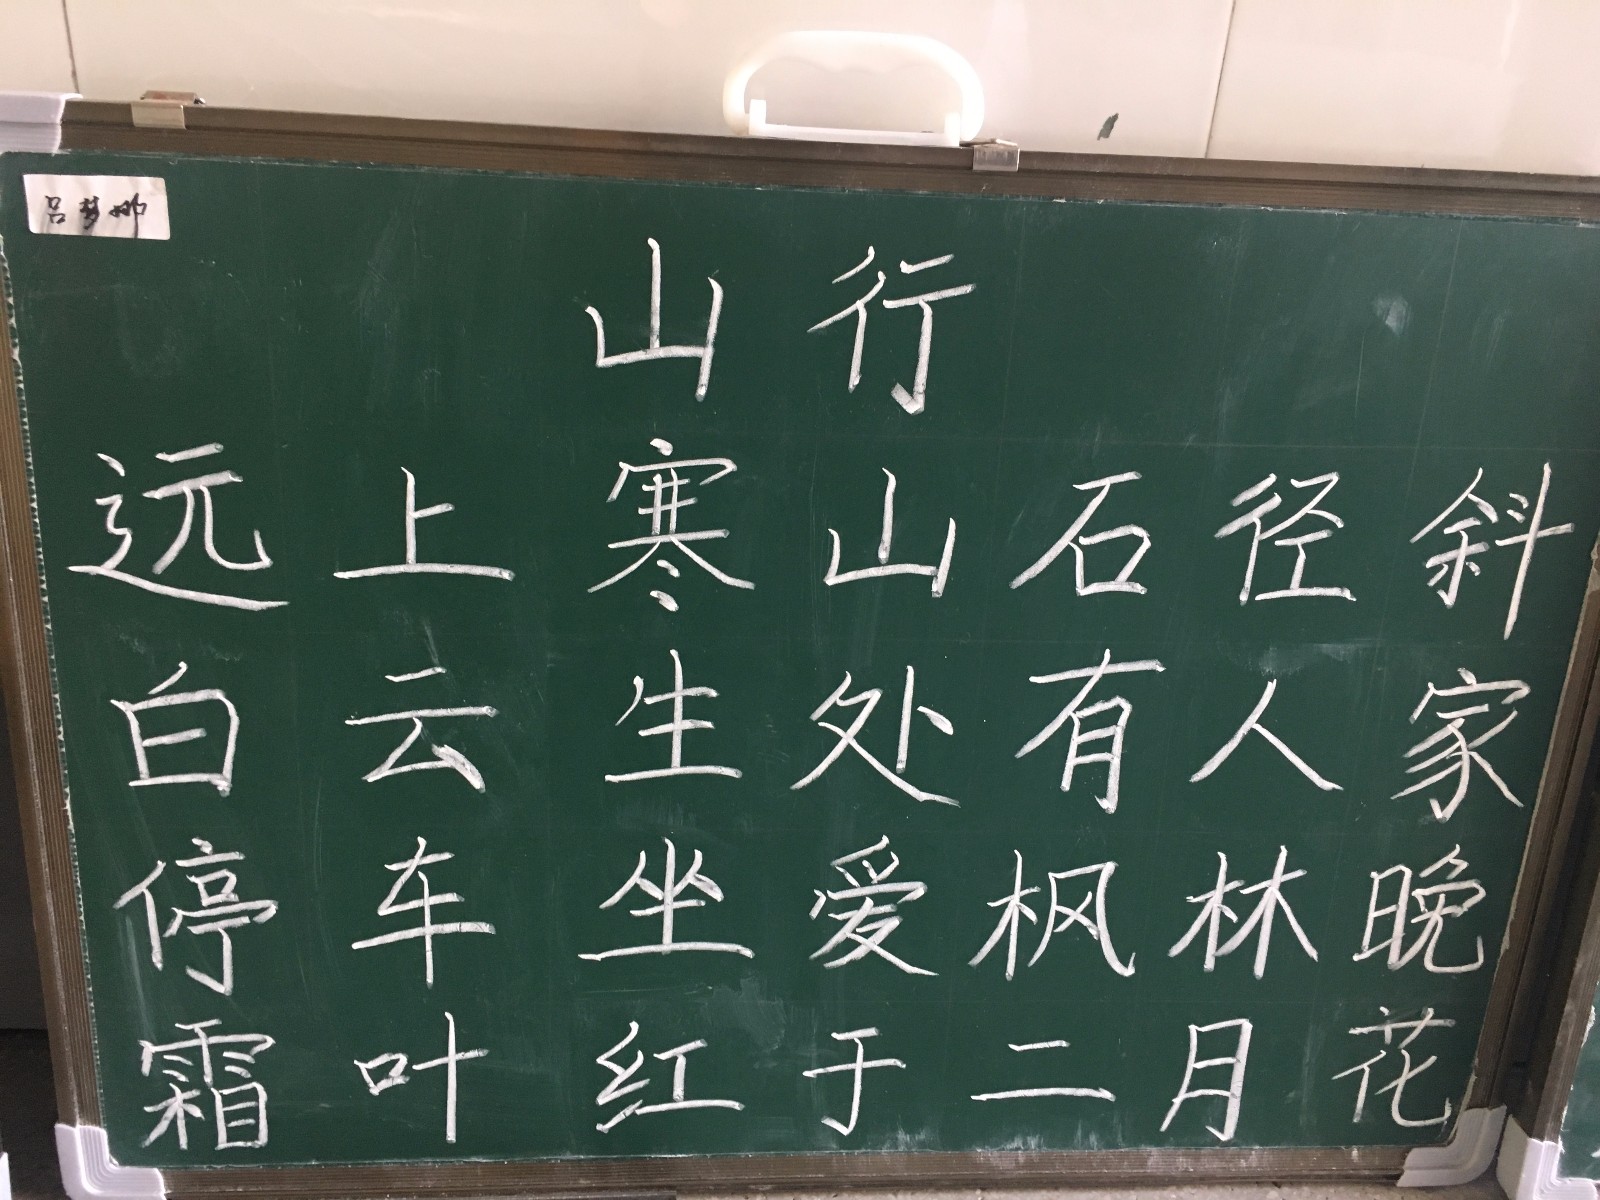 吕梦娜
山行
远上寒山石径斜
白云生处有人家
停车坐爱枫林晚
霜叶红于二月花